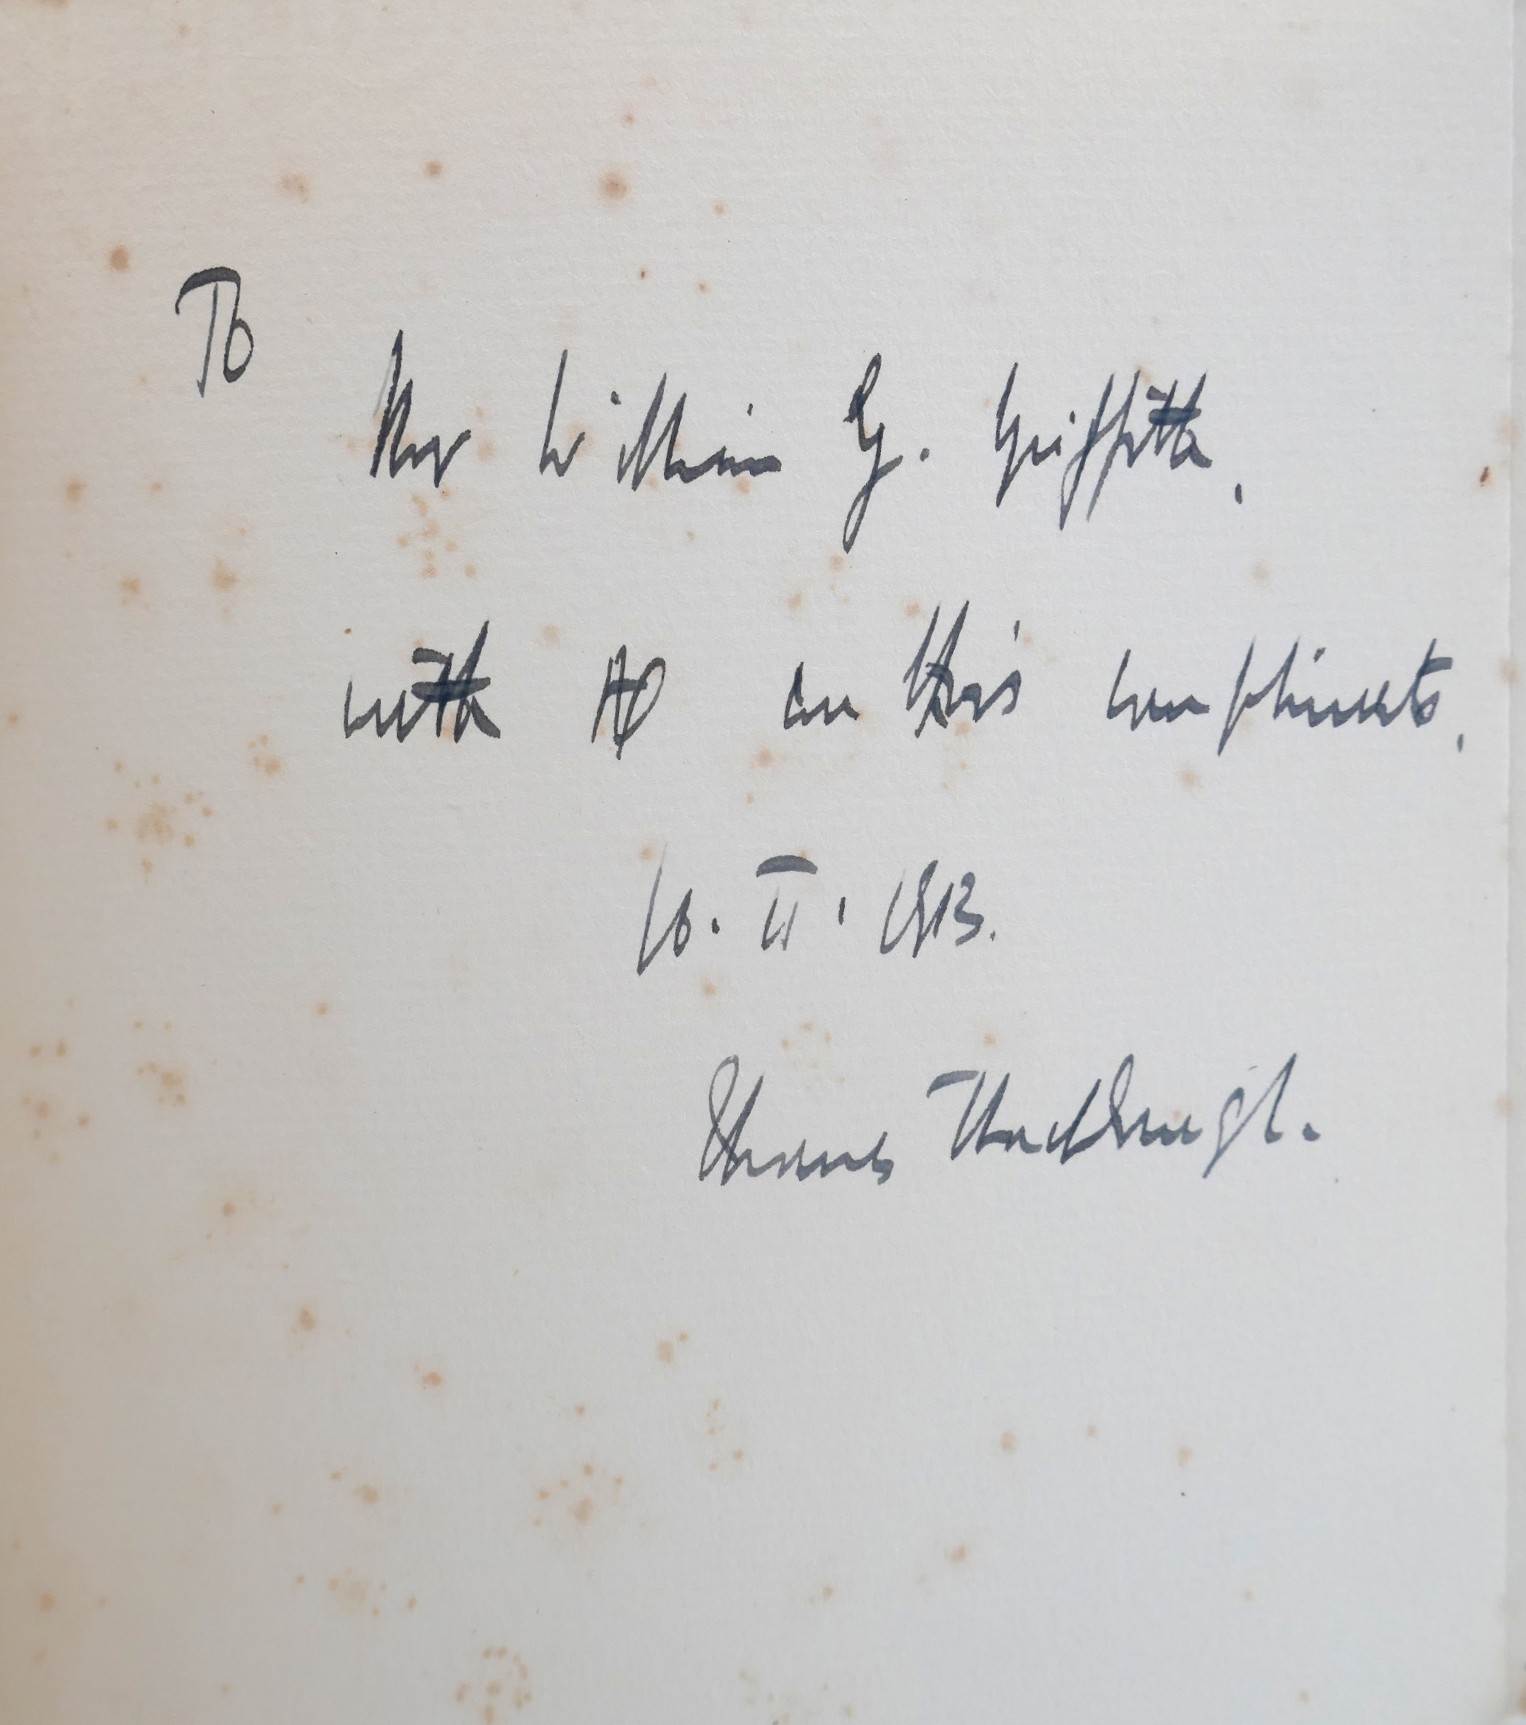 To
Mr William G. Griffith,
with the author's compliments,
10. II. 1913.
Thomas MacDonagh.